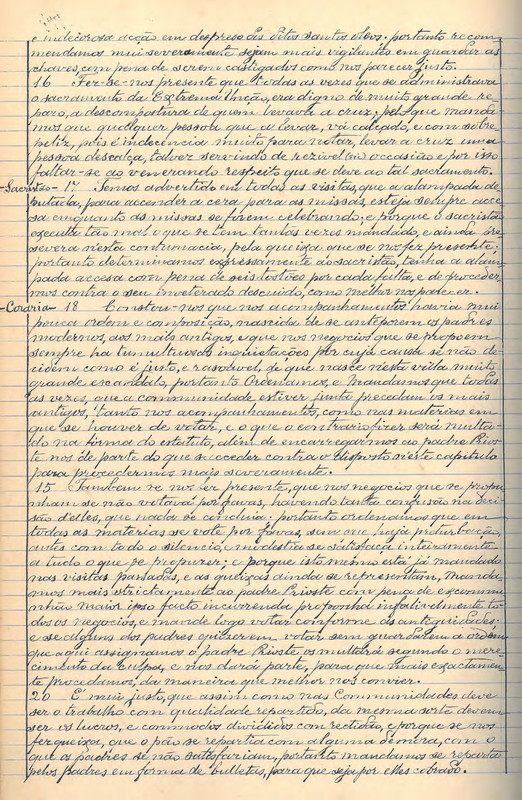 e indecorosa acção em despreso dos Ditos santos oleos. portanto recom-
mendamos mui severamente sejam mais vigilantes em guardar as
chaves, com pena de serem castigados como nos parecer justo.
16 Fez-se-nos presente que todas as vezes que se administrava
o sacramento da Extrema Unção, era digno de muito grande re-
paro, a descompostura de quem levava a cruz; pelo que manda-
mos que qualquer pessoa que a levar, vá calçado, e com sobre
peliz, pois é indecencia muito para notar, levar a cruz uma
pessoa descalça, talvez servindo de rezivel (sic) occasião e por isso
faltar-se ao venerando respeito que se deve ao tal sacramento.
-Sacristão- 17 Temos advertido em todas as visitas, que a alampada de-
putada, para accender a cera para as missas, esteja sempre acce-
sa enquanto as missas se forem celebrando; e porque o sacristão
executa tão mal o que se tem tantas vezes mandado, e ainda per-
severa n'esta contumacia, pela queixa que se nos fez presente;
portanto determinamos expressamente ao sacristão, tenha a alam-
pada accesa com pena de seis tostões por cada falta, e de proceder-
mos contra o seu inveterado descuido, como melhor nos parecer.
-Coraria- 18 Constou-nos que nos acompanhamentos havia mui
pouca ordem e composição, nascida de se anteporem os padres
modernos, aos mais antigos, e que nos negocios que se propoem
sempre ha tumultuosas inquietações por cuja causa se não de-
cidem como é justo, e rasoavel, de que nasce nesta villa muito
grande escandalo, portanto Ordenamos, e Mandamos que todas
as vezes, que a communidade estiver junta precedam os mais
antigos, tanto nos acompanhamentos, como nas materias em
que se houver de votar, e o que o contrario fizer será multa-
do na forma do estatuto, além de encarregarmos ao padre Rios-
te nos dê parte do que succeder contra o disposto n'este capitulo
para procedermos mais severamente.
15 Tambem se nos fez presente, que nos negocios que se propu-
nham se não votava por favas, havendo tanta confusão na deci-
são d'elles, que nada se concluia: portanto ordenamos que em
todas as materias se vote por favas, sem que haja perturbação,
antes com todo o silencio, e modestia se satisfaça inteiramente
a tudo o que se propuzer; e porque isto mesmo está já mandado
nas visitas passadas, e as queixas ainda se representam, manda-
mos mais strictamente ao padre Rioste com pena de excommu-
nhão maior ipso facto incurrenda proponha infalivelmente to-
dos os negocios, e mande logo votar conforme ás antiguidades:
e se alguns dos padres quizerem votar sem guardarem a ordem
que aqui assignamos o padre Rioste os multará segundo o mere-
cimento da culpa, e nos dará parte, para que mais exactamen-
te procedamos, da maneira que melhor nos convier.
20 É mui justo, que assim como nas Communidades deve
ser o trabalho com igualdade repartido, da mesma sorte devem
ser os lucros, e commodos divididos com rectidão, e porque se nos
fez queixa, que o pão se repartia com alguma demora, com o
que os padres se não satisfaziam, portanto mandamos se reparta
pelos padres em forma de bulletas, para que seja por elles cobrado.